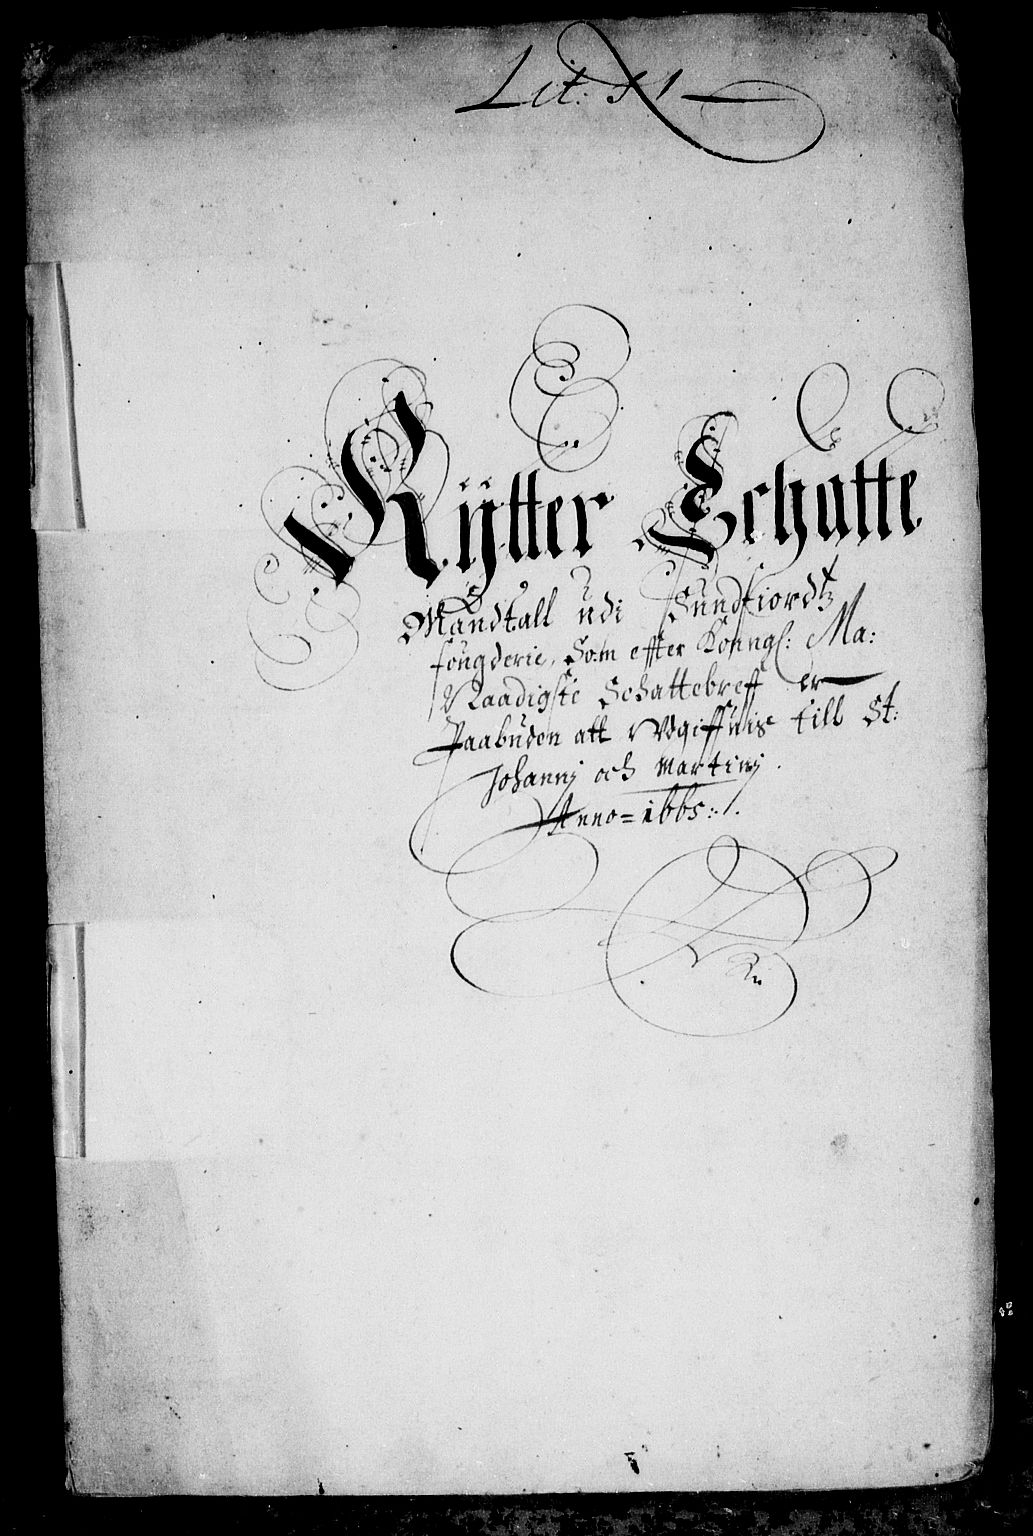 Lit: H
Rÿtter Schatte
Mandtall udi Sundfiordtz
fougderie, Som effter Konngl: Ma:
Naadigste Schattebreff er
Paabuden att Udgiffuis till St:
Johannj och Martinj.
Anno = 1665:/.